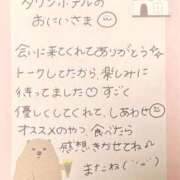 タウンホテルの
おにいさま
会いに来てくれてありがとう
トークしてたから、楽しみに
待ってました♡ すごく
優しくしてくれて、しあわせ
オススメのやつ、食べたら
感想、きかせてね
またね(˙ᵕ˙)